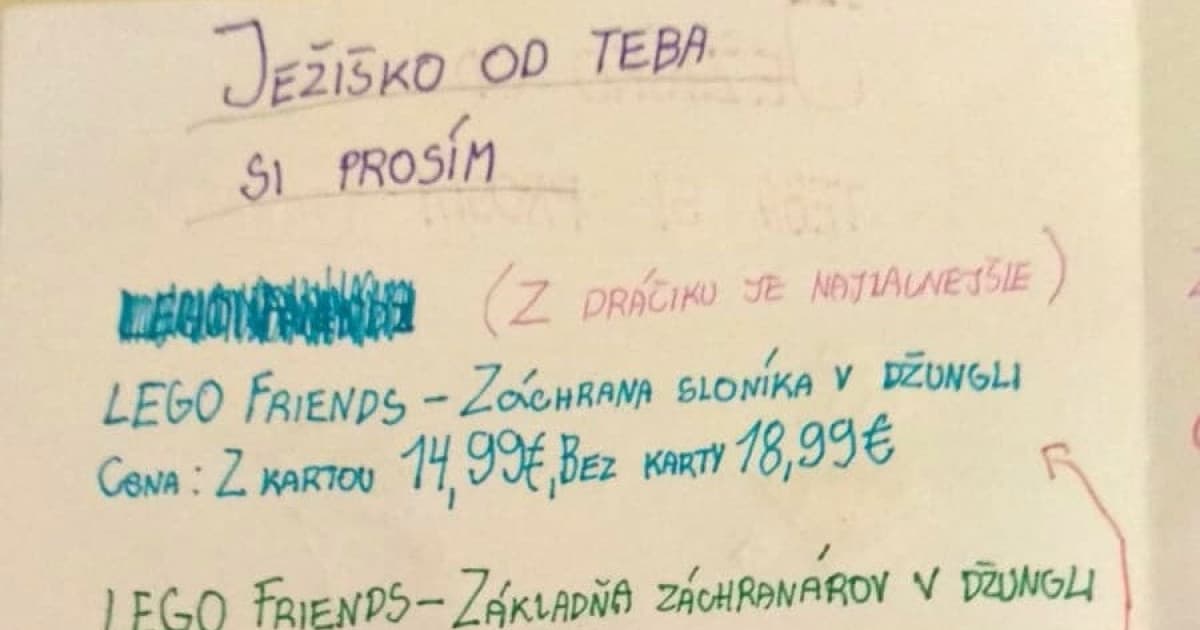 JEŽIŠKO OD TEBA
SI PROSÍM
(Z DRÁČIKU JE NAJZALNEJŠIE)
LEGO FRIENDS - ZÁCHRANA SLONÍKA V DŽUNGLI
CENA: Z KARTOU 14,99€, BEZ KARTY 18,99€
LEGO FRIENDS - ZÁKLADŇA ZÁCHRANÁROV V DŽUNGLI